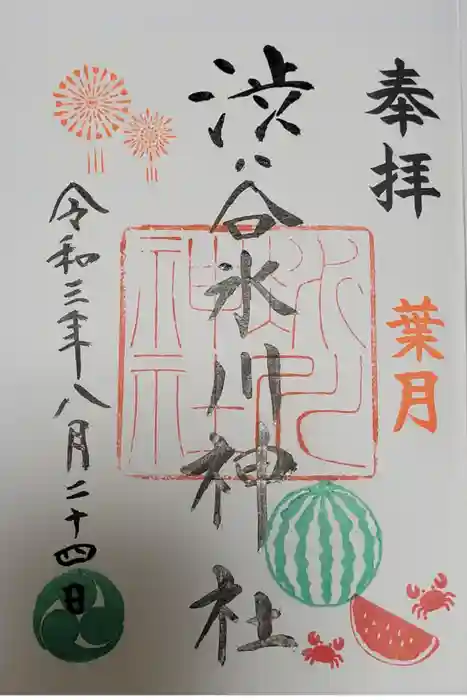 奉拝
葉月
渋谷氷川神社
令和三年八月二十四日